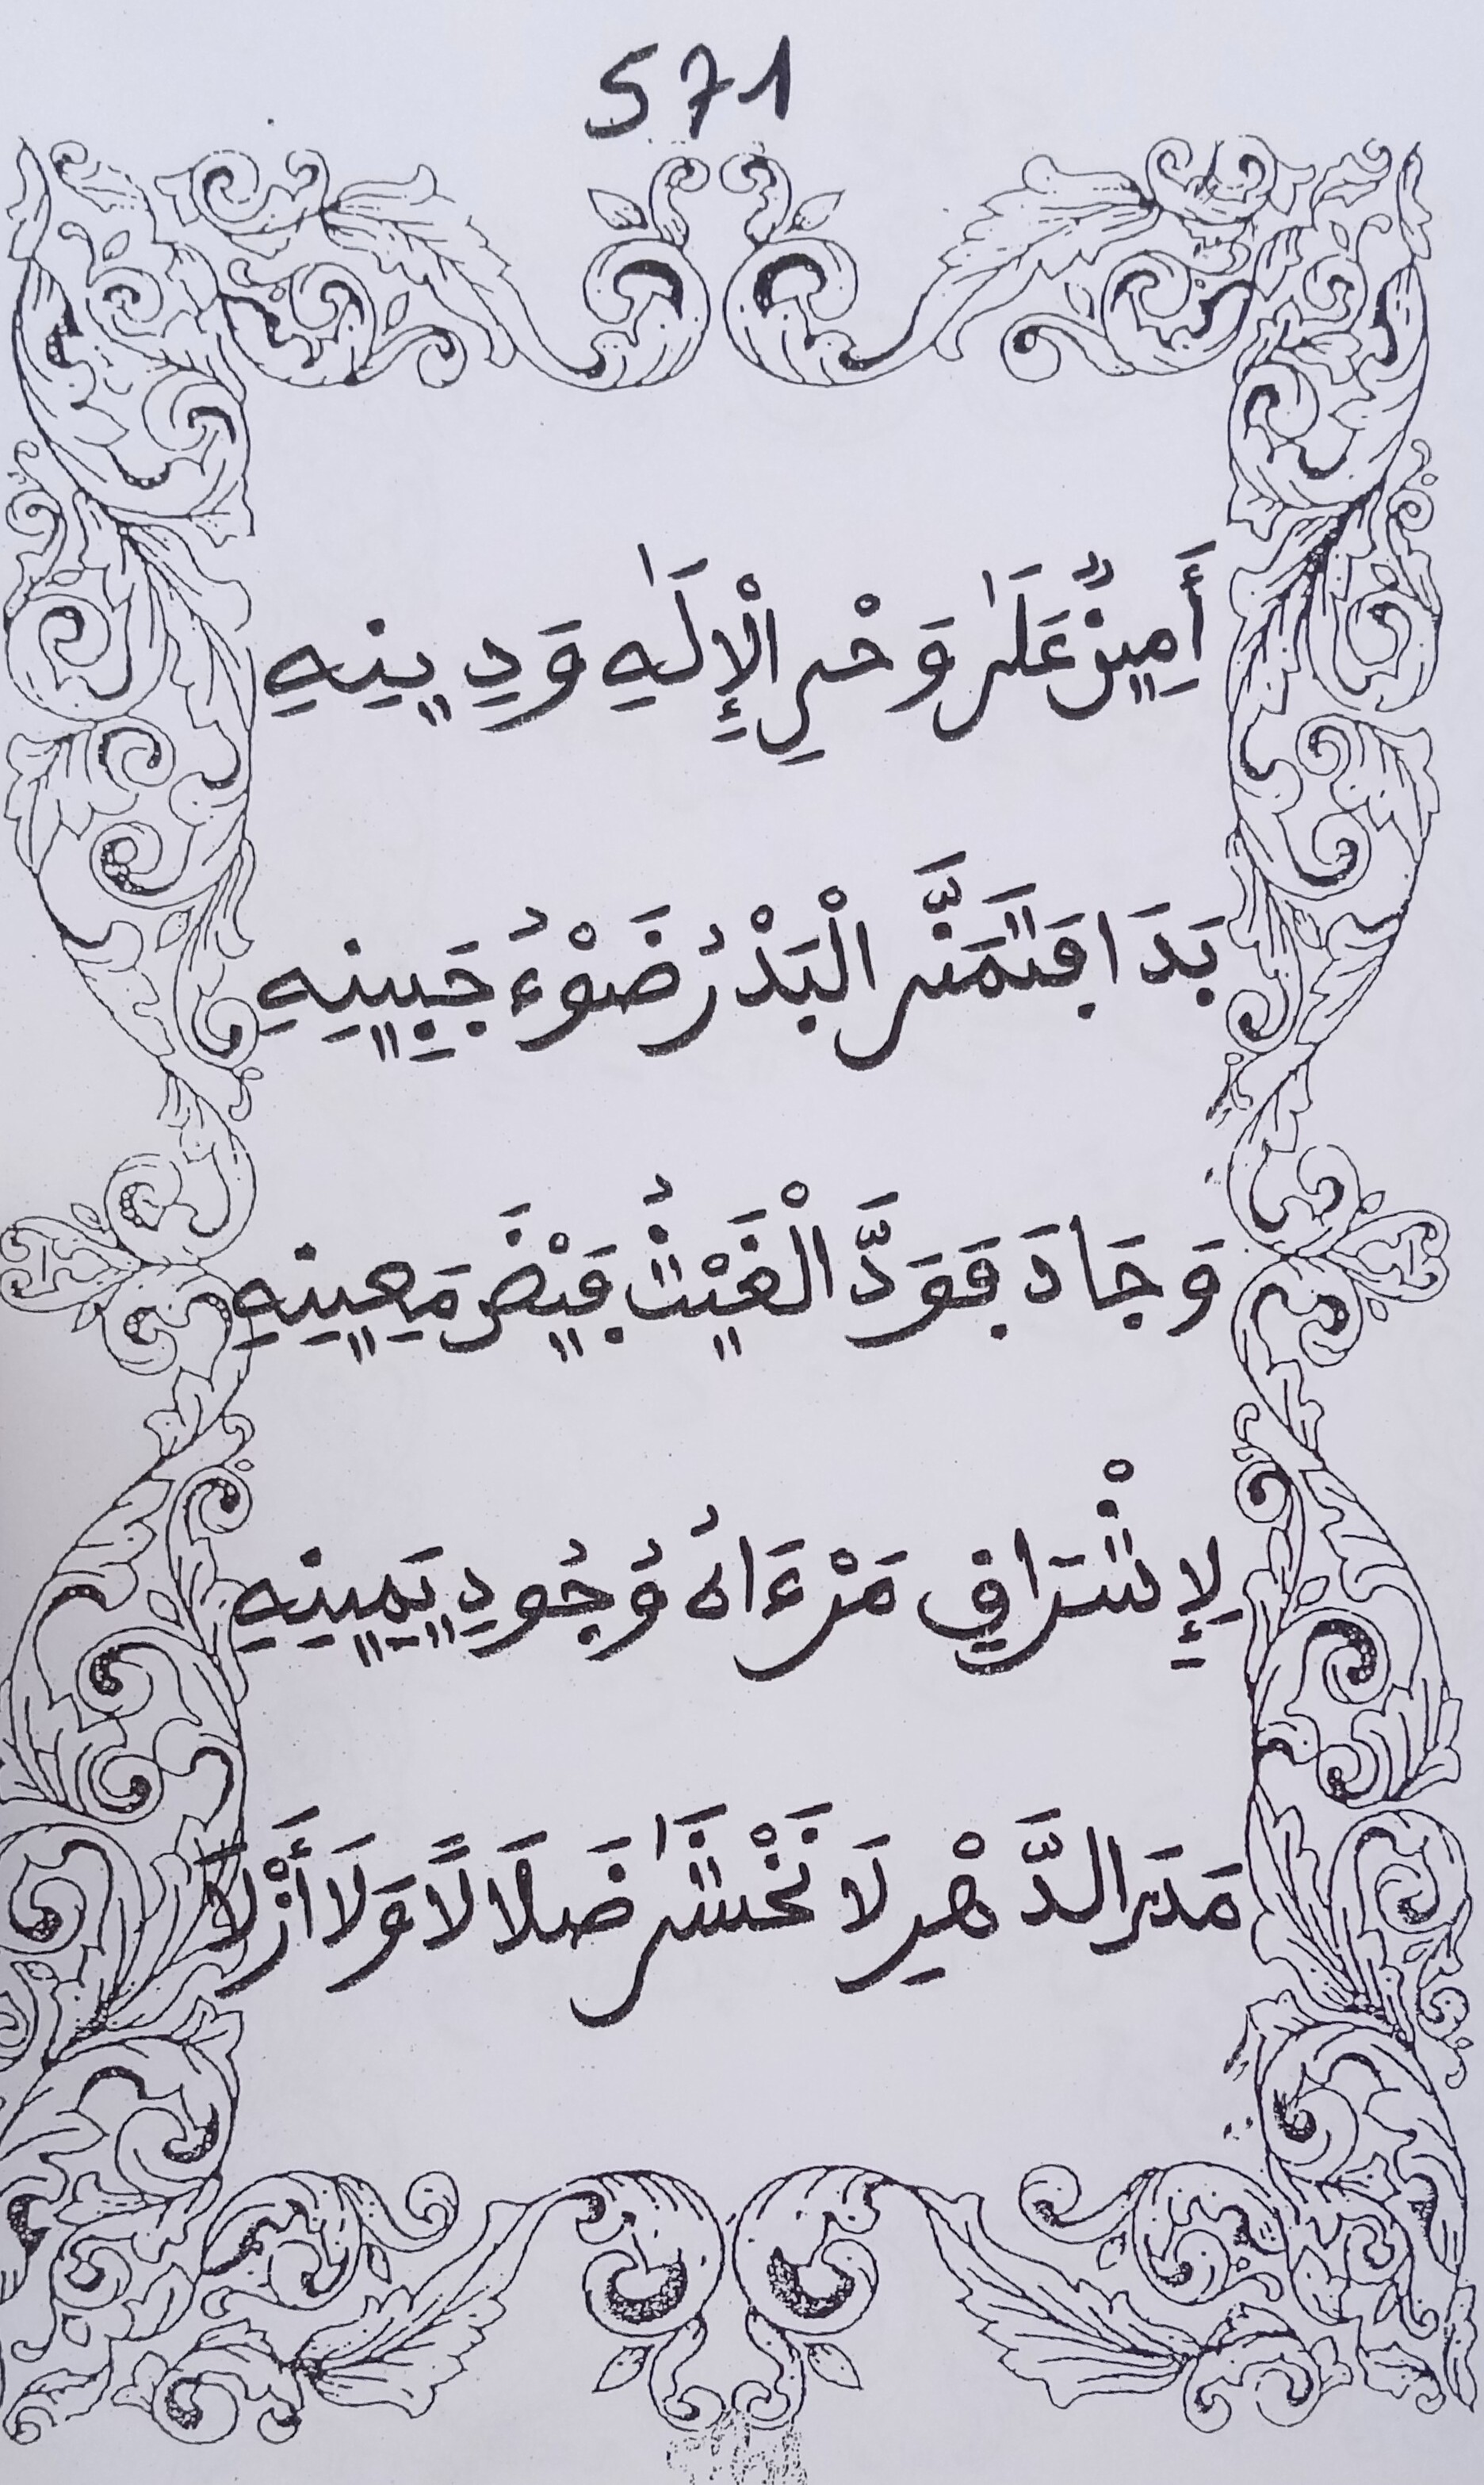 571
أَمِينٌ عَلَىٰ وَحْيِ الْإِلَٰهِ وَدِينِهِ
بَدَا فَتَمَنَّى الْبَدْرُ ضَوْءَ جَبِينِهِ
وَجَادَ فَوَدَّ الْغَيْثُ فَيْضَ مَعِينِهِ
لِإِشْرَافِ مَرْءَاهُ وُجُودِ يَمِينِهِ
مَدَى الدَّهْرِ لَا نَخْشَىٰ ضَلَالًا وَلَا أَزْلَا